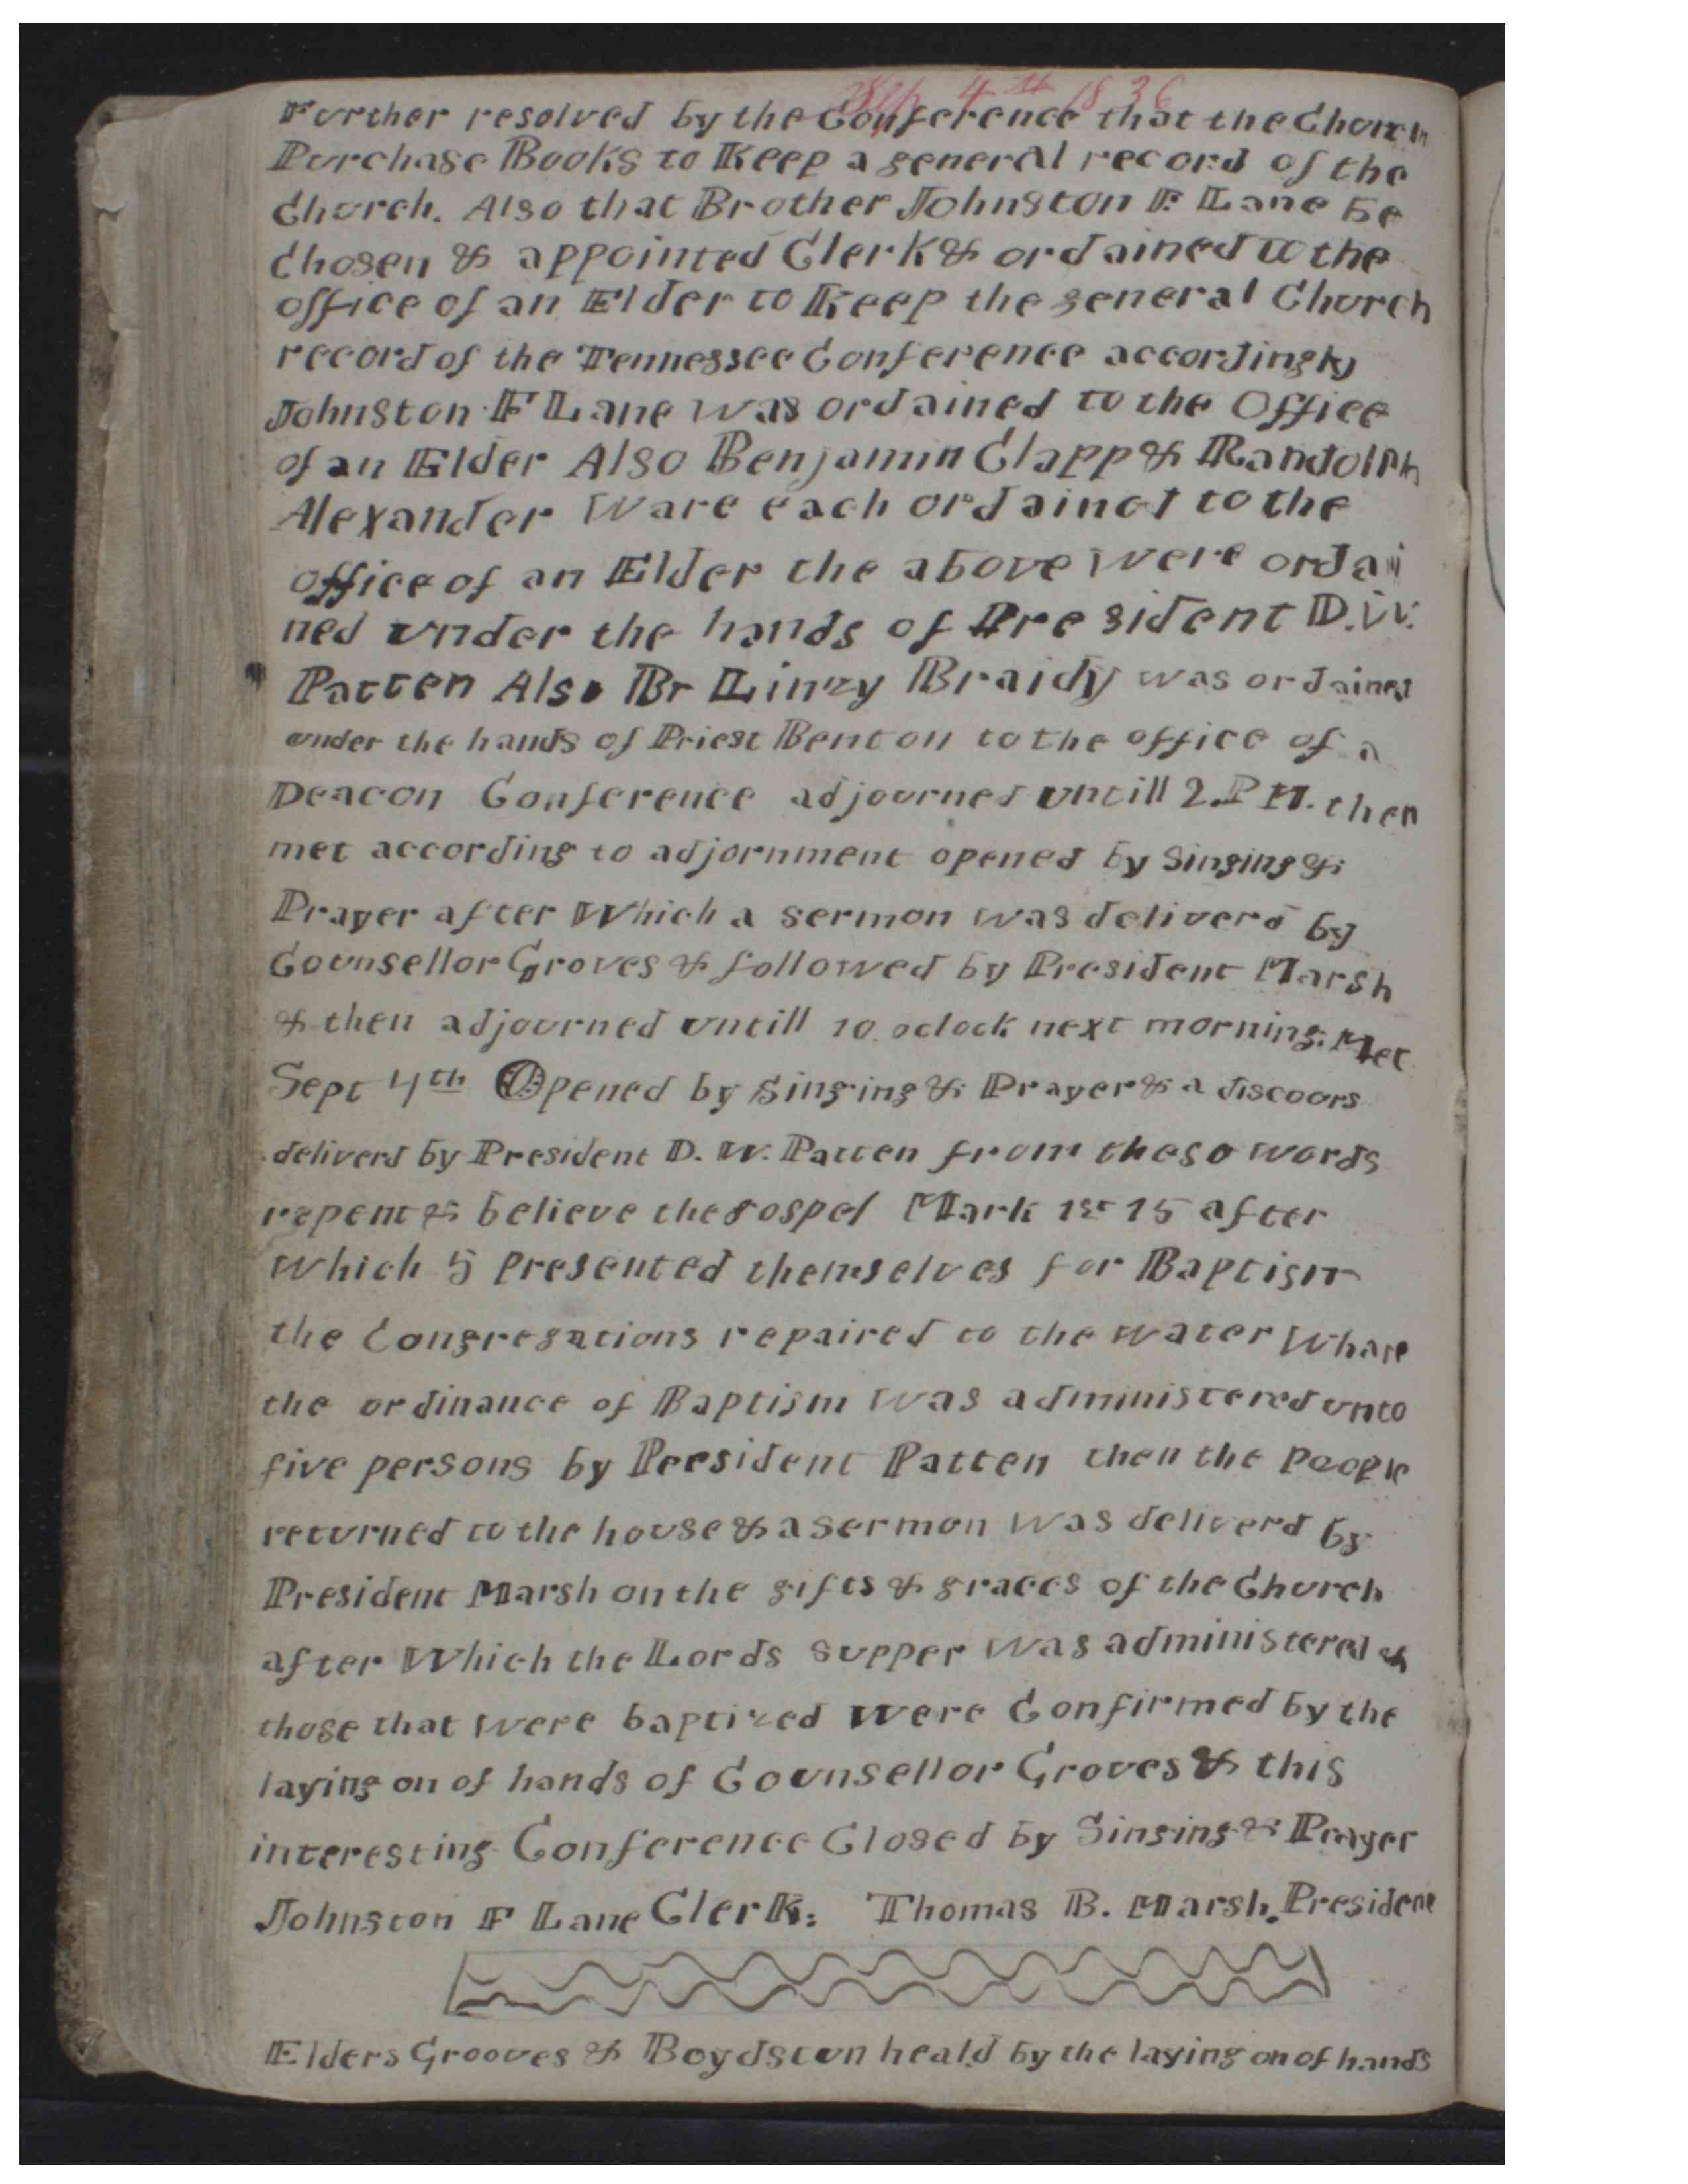 Sep 4th 1836
Further resolved by the Conference that the Church
Purchase Books to Keep a general record of the
Church. Also that Brother Johnston F. Lane be
Chosen & appointed Clerk & ordained to the
office of an Elder to Keep the general Church
record of the Tennessee Conference accordingly
Johnston F Lane was ordained to the Office
of an Elder Also Benjamin Clapp & Randolph
Alexander Ware each ordained to the
office of an Elder the above were ordai
ned under the hands of President D.W.
Patten Also Br Linzy Braidy was ordained
under the hands of Priest Benton to the office of a
Deacon Conference adjourned untill 2.P M. then
met according to adjornment opened by Singing &
Prayer after Which a sermon was deliverd by
Counsellor Groves & followed by President Marsh
& then adjourned untill 10. oclock next morning. Met
Sept 4th Opened by Singing & Prayer & a discours
deliverd by President D. W. Patten from these words
repent & believe the gospel Mark 1st 15 after
which 5 presented themselves for Baptism
the Congregations repaired to the water Whare
the ordinance of Baptism was administered unto
five persons by Peesident Patten then the people
returned to the house & a sermon was deliverd by
President Marsh on the gifts & graces of the Church
after Which the Lords supper was administered &
those that were baptized were Confirmed by the
laying on of hands of Counsellor Groves & this
interesting Conference Closed by Singing & Prayer
Johnston F Lane Clerk: Thomas B. Marsh. President
Elders Grooves & Boydstun heald by the laying on of hands